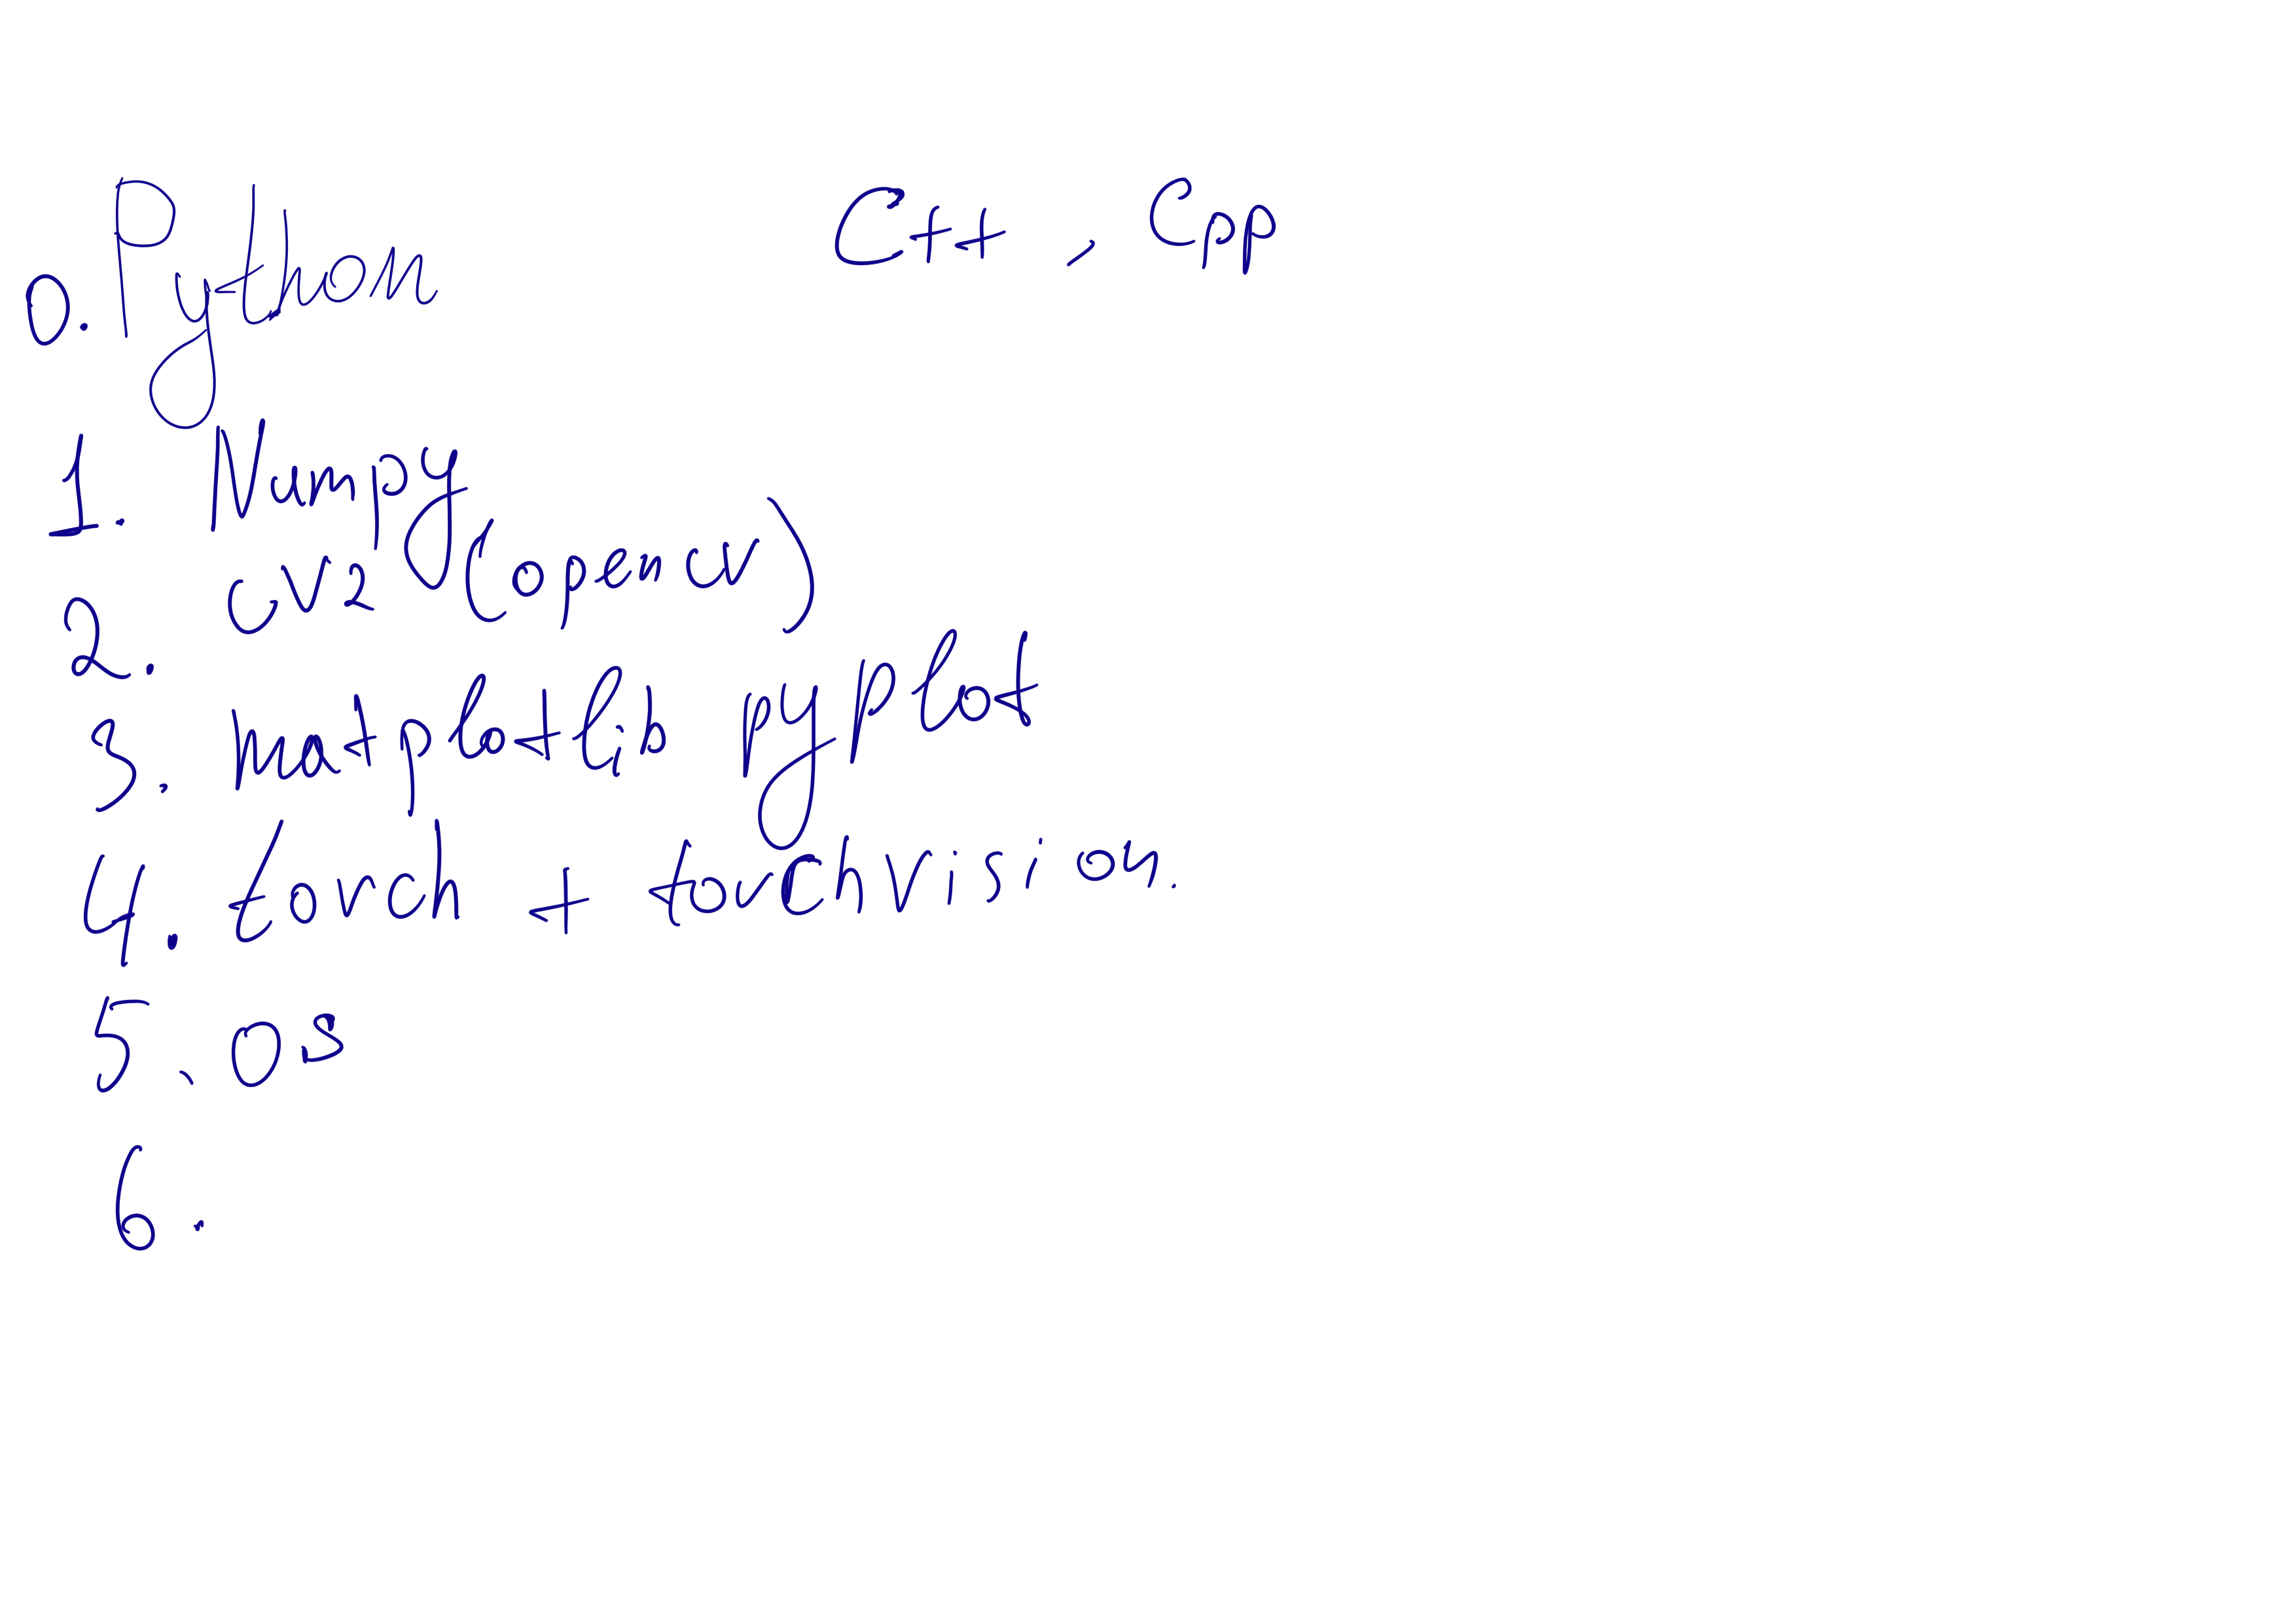 0. Python C++ , Cpp
1. Numpy
2. cv2 (opencv)
3. matplotlib pyplot
4. torch + torchvision.
5. os
6.